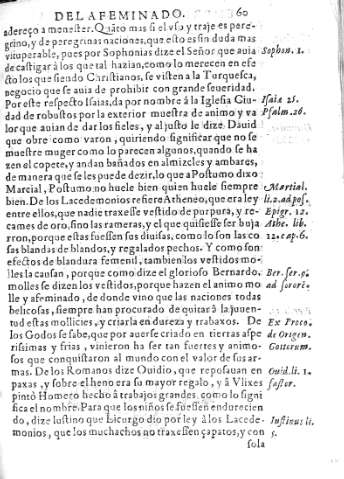 DEL AFEMINADO. 60
adereço a menester. Quãto mas si el vso y traje es pere-
grino, y de peregrinas naciones, que esto es sin duda mas
vituperable, pues por Sophonias dize el Señor que auia Sophon. 1.
de castigar à los que tal hazian, como lo merecen en efe
cto los que siendo Christianos, se visten a la Turquesca,
negocio que se auia de prohibir con grande seueridad.
Por este respecto Isaias, da por nombre à la Iglesia Ciu- Isaiæ 25.
dad de robustos por la exterior muestra de animo y va Psalm. 26.
lor que auian de dar los fieles, y al justo le dize Dauid
que obre como varon, quiriendo significar que no se
muestre muger como lo parecen algunos, quando se ha
zen el copete, y andan bañados en almizcles y ambares,
de manera que se les puede dezir, lo que a Postumo dixo
Marcial, Postumo, no huele bien quien huele siempre Martial.
bien. De los Lacedemonios refiere Atheneo, que era ley li. 2. ad pos.
entre ellos, que nadie traxesse vestido de purpura, y re- Epigr. 12.
cames de oro, sino las rameras, y el que quisiesse ser buja Athe. lib.
rron, porque estas fuessen sus diuisas, como lo son las co 12. cap. 6.
sas blandas de blandos, y regalados pechos. Y como son
efectos de blandura femenil, tambien los vestidos mo-
lles la causan, porque como dize el glorioso Bernardo. Ber. ser. 9.
molles se dizen los vestidos, porque hazen el animo mo ad sorore.
lle y afeminado, de donde vino que las naciones todas
belicosas, siempre han procurado de quitar à la juuen-
tud estas mollicies, y criarla en dureza y trabajos. De Ex Proco.
los Godos se sabe, que por auerse criado en tierras aspe de Origen.
rissimas y frias, vinieron ha ser tan fuertes y animo- Gottorum.
sos que conquistaron al mundo con el valor de sus ar-
mas. De los Romanos dize Ouidio, que reposauan en Ouid. li. 1.
paxas, y sobre el heno era su mayor regalo, y à Vlixes fastor.
pintò Homero hecho à trabajos grandes, como lo signi
fica el nombre. Para que los niños se fuessen endurecien
do, dize Iustino que Licurgo dio por ley à los Lacede- Iustinus li.
monios, que los muchachos no traxessen çapatos, y con 3.
sola